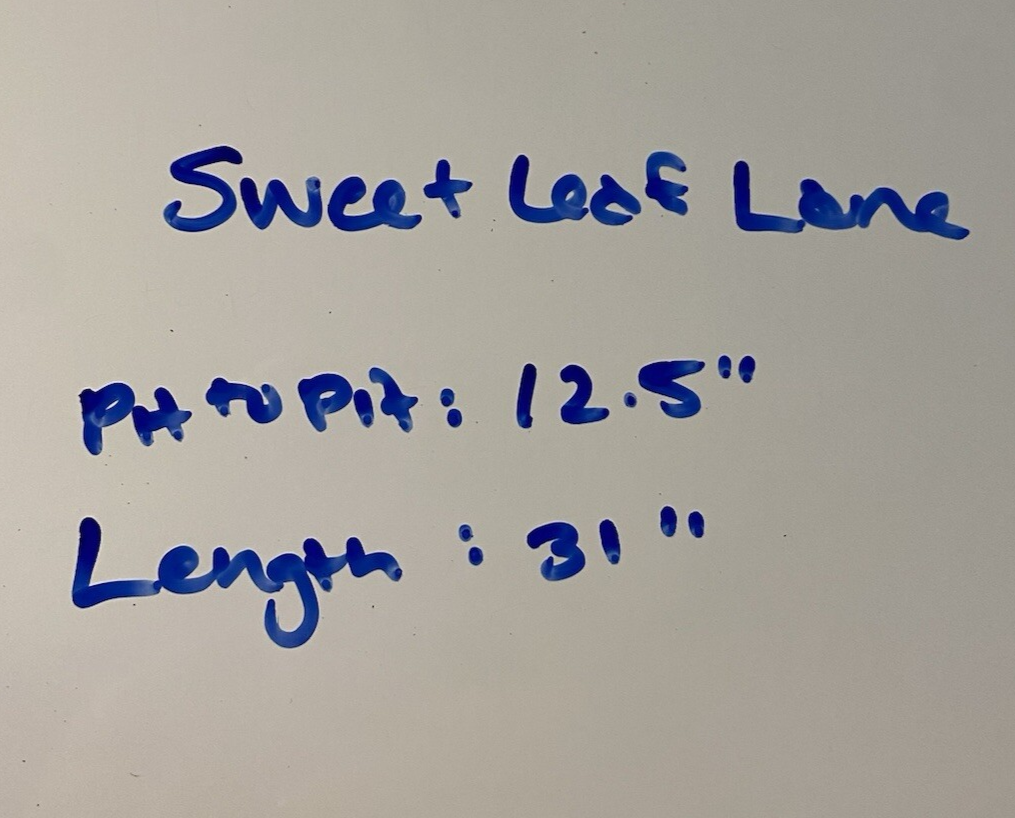 Sweet Leaf Lane
Pit to Pit: 12.5"
Length: 31"